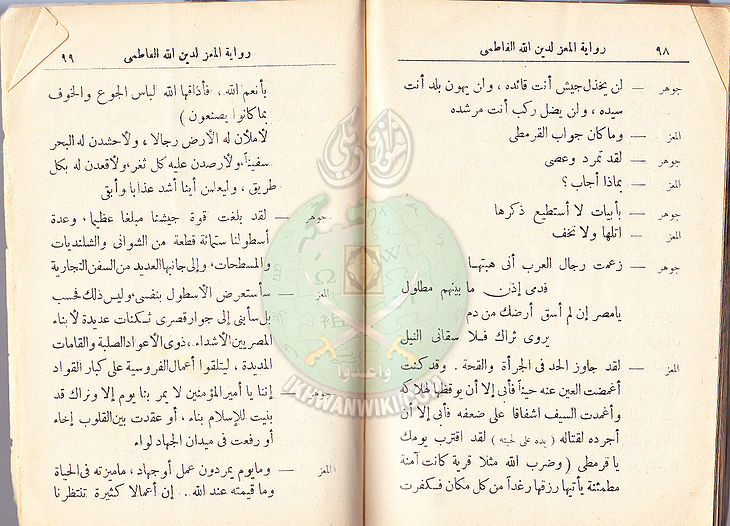 رواية المعز لدين الله الفاطمى ٩٨
جوهر — لن يخذل جيش أنت قائده ، ولن يهون بلد أنت
سيده ، ولن يضل ركب أنت مرشده
المعز — وما كان جواب القرمطى
جوهر — لقد تمرد وعصى
المعز — بماذا أجاب ؟
جوهر — بأبيات لا أستطيع ذكرها
المعز — اتلها ولا تخف
جوهر — زعمت رجال العرب أنى هبتهـا
فدمى إذن ما بينهم مطلول
يامصر إن لم أسق أرضك من دم
يروى ثراك فـلا سقانى النيل
المعز — لقد جاوز الحد فى الجرأة والقحة . وقد كنت
أغمضت العين عنه حيناً فأبى إلا أن يوقظها لهلاكه
وأغمدت السيف اشفاقا على ضعفه فأبى إلا أن
أجرده لقتاله ( يده على لحيته ) لقد اقترب يومك
يا قرمطى ( وضرب الله مثلا قرية كانت آمنة
مطمئنة يأتيها رزقها رغداً من كل مكان فـكفرت
رواية المعز لدين الله الفاطمى ٩٩
بأنعم الله ، فأذاقها الله لباس الجوع والخوف
بما كانوا يصنعون )
لأملأن له الأرض رجالا ، ولأحشدن له البحر
سفيناً ، ولأرصدن عليه كل ثغر ، ولأقعدن له بكل
طريق ، وليعلمن أينا أشد عذابا وأبقى
جوهر — لقد بلغت قوة جيشنا مبلغا عظيما ، وعدة
أسطولنا ستمائة قطعة من الشوانى والشلنديات
والمسطحات ، وإلى جانبها العديد من السفن التجارية
المعز — سأستعرض الأسطول بنفسى ، وليس ذلك فحسب
بل سأبنى إلى جوار قصرى ثـكنات عديدة لأبناء
المصريين الأشداء ، ذوى الأعواد الصلبة والقامات
المديدة ، ليتلقوا أعمال الفروسية على كبار القواد
جوهر — إننا يا أمير المؤمنين لا يمر بنا يوم إلا ونراك قد
بنيت للإسلام بناء ، أو عقدت بين القلوب إخاء
أو رفعت فى ميدان الجهاد لواء
المعز — وما يوم يمر دون عمل أو جهاد ، ما ميزته فى الحياة
وما قيمته عند الله . . إن أعمالا كثيرة تنتظرنا
IKHWANWIKI.COM
وأعدوا